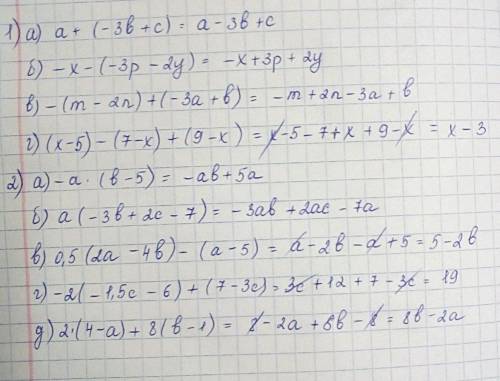 1) а) a + (-3в + c) = a - 3в + c
б) -x - (-3p - 2y) = -x + 3p + 2y
в) -(m - 2n) + (-3a + в) = -m + 2n - 3a + в
г) (x-5) - (7-x) + (9-x) = x - 5 - 7 + x + 9 - x = x - 3
2) а) -a · (в - 5) = -aв + 5a
б) a (-3в + 2c - 7) = -3aв + 2ac - 7a
в) 0,5 (2a - 4в) - (a - 5) = a - 2в - a + 5 = 5 - 2в
г) -2(-1,5c - 6) + (7 - 3c) = 3c + 12 + 7 - 3c = 19
д) 2·(4-a) + 8(в-1) = 8 - 2a + 8в - 8 = 8в - 2a